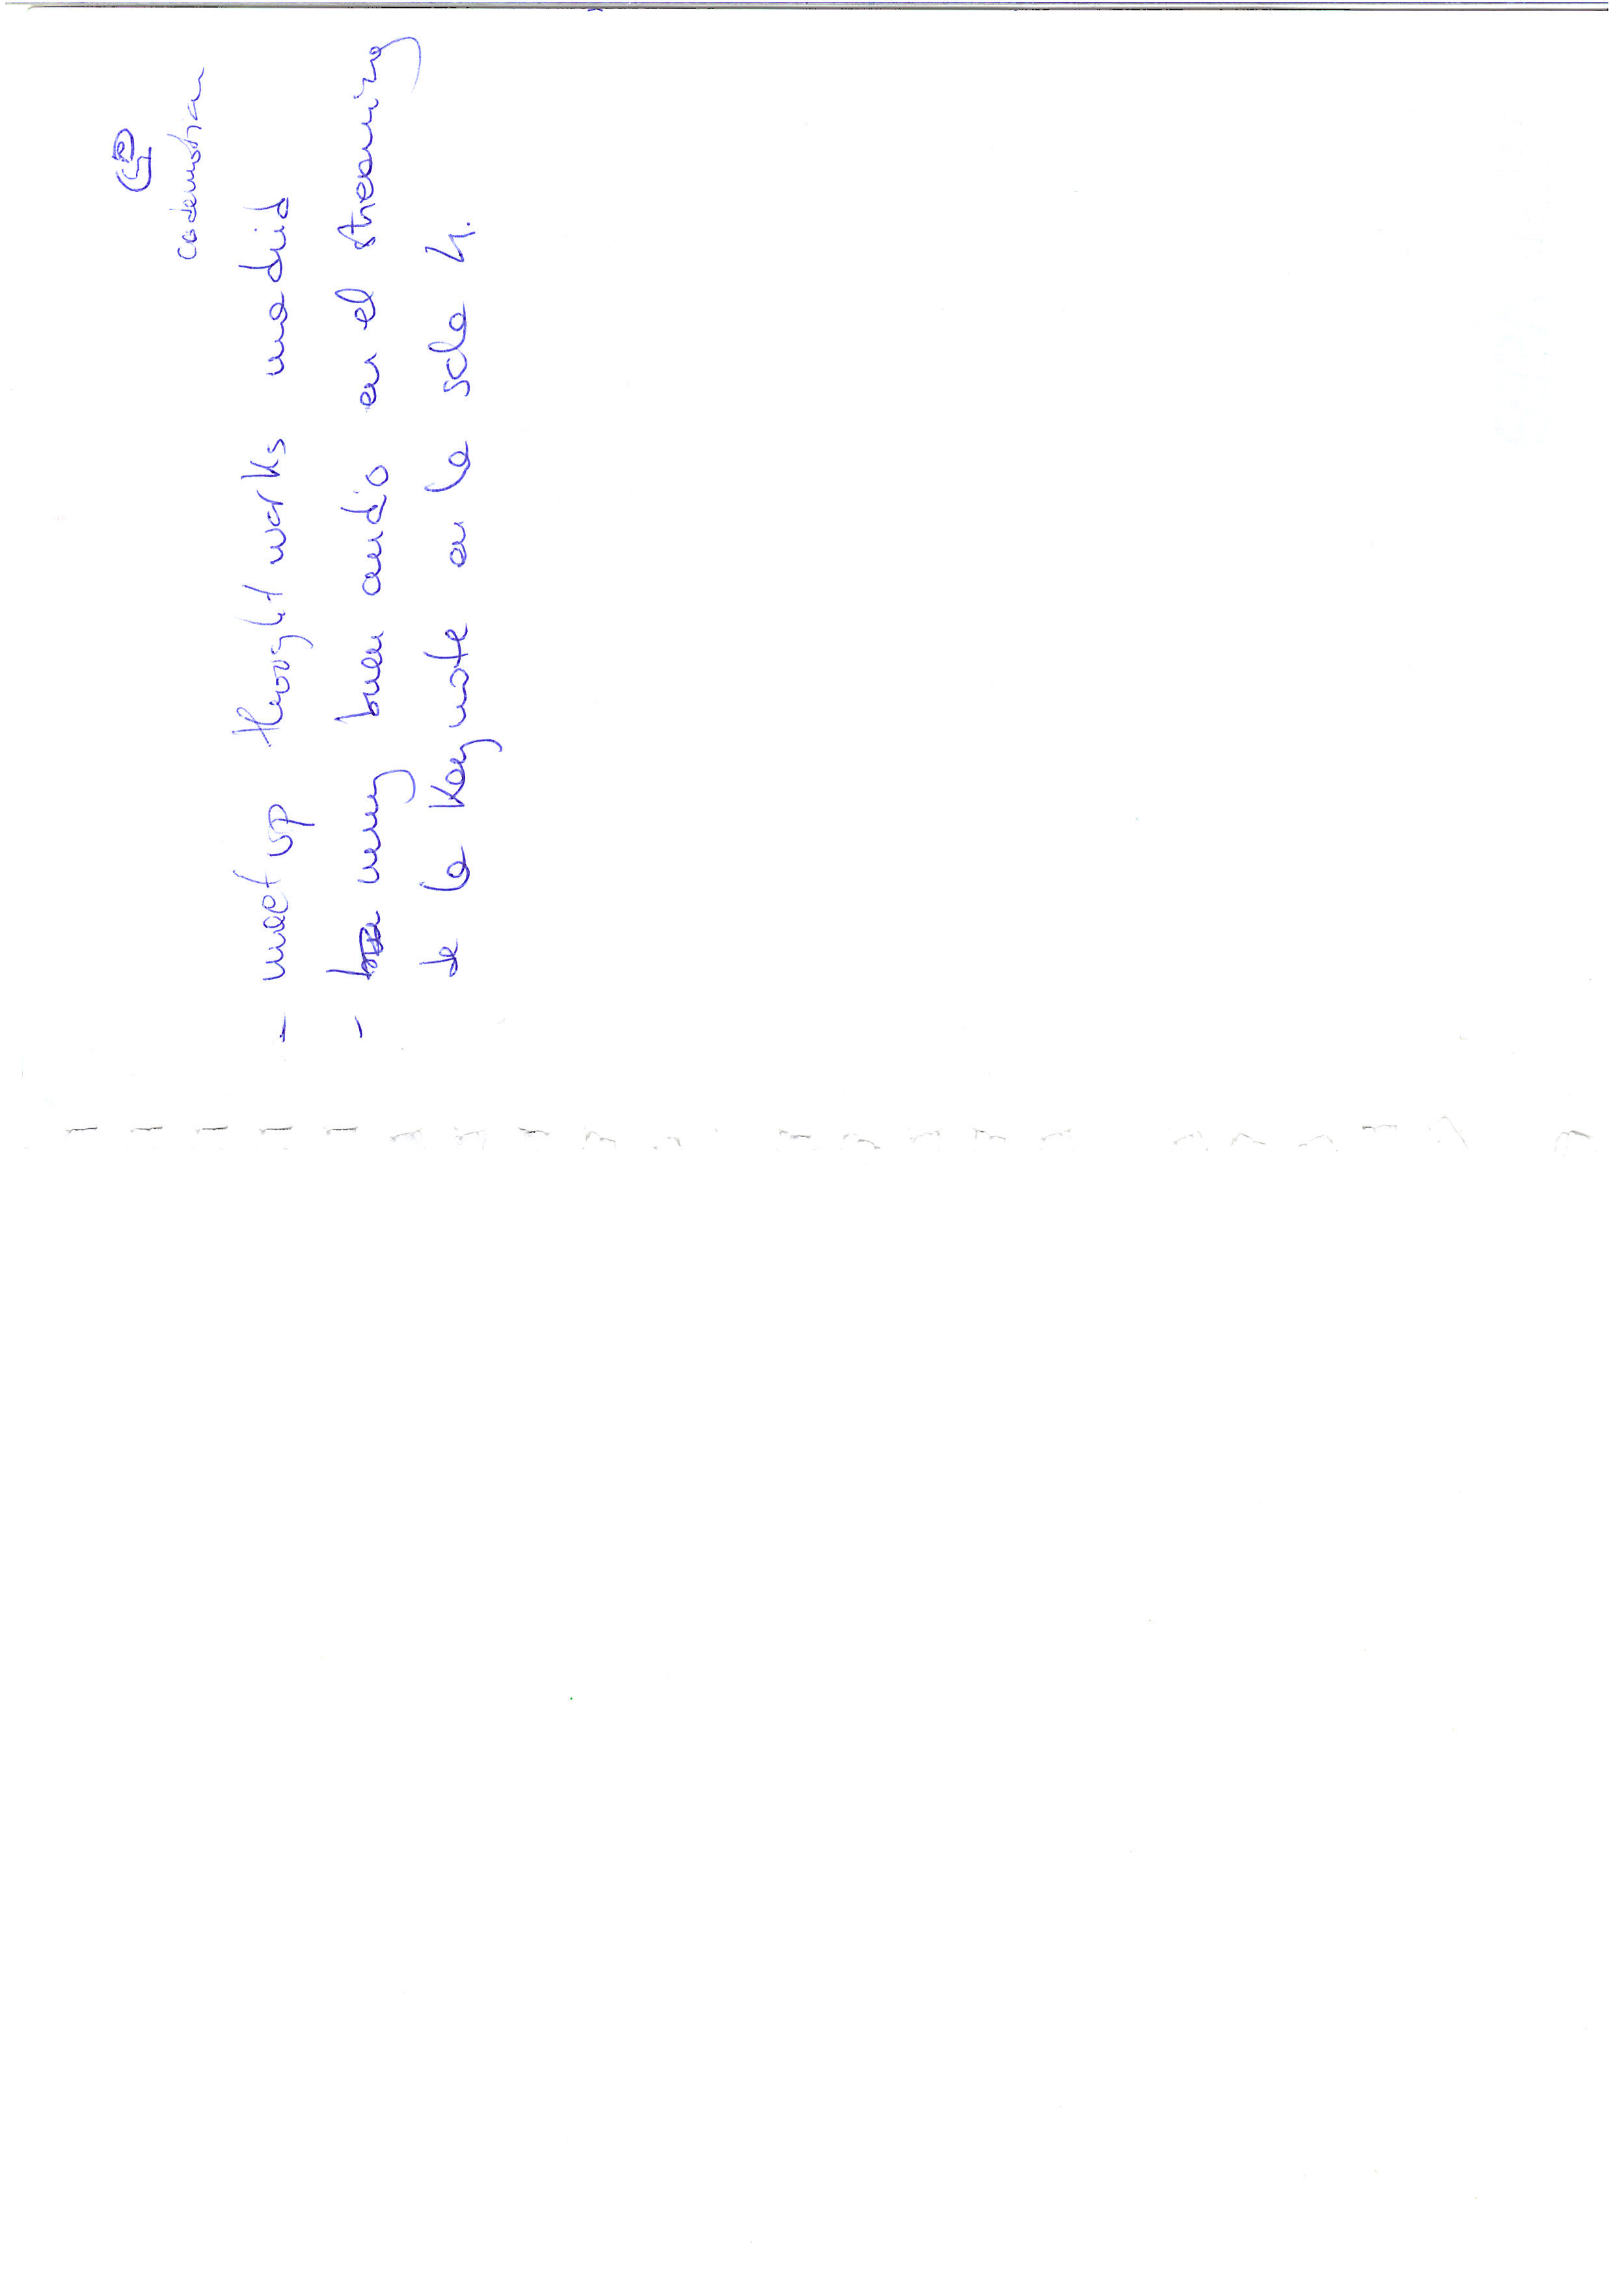 codemotion
- meet up thoughtworks madrid
- muy buen audio en el streaming
de la Keynote en la sala 4.